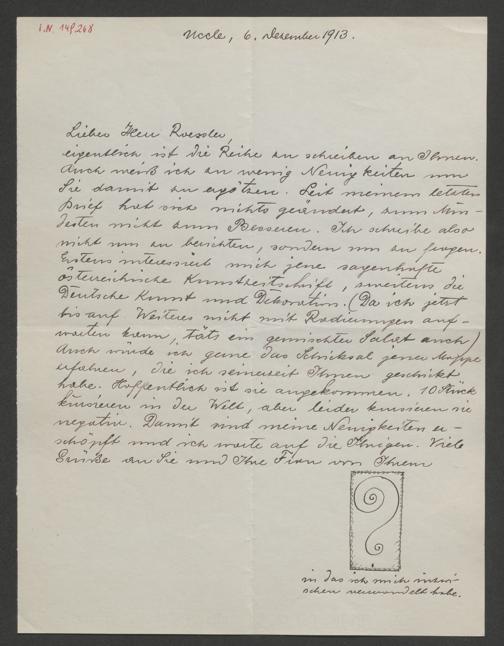 I.N. 149.268
Uccle, 6. Dezember 1913.
Lieber Herr Roessler,
eigentlich ist die Reihe zu schreiben an Ihnen.
Auch weiß ich zu wenig Neuigkeiten um
Sie damit zu ergötzen. Seit meinem letzten
Brief hat sich nichts geändert, zum Min-
desten nicht zum Besseren. Ich schreibe also
nicht um zu berichten, sondern um zu fragen.
Erstens interessiert mich jene sagenhafte
österreichische Kunstzeitschrift, zweitens die
Deutsche Kunst und Dekoration. (Da ich jetzt
bis auf Weiteres nicht mit Radierungen auf-
warten kann, täts ein gemischter Salat auch)
Auch würde ich gerne das Schicksal jener Mappe
erfahren, die ich seinerzeit Ihnen geschickt
habe. Hoffentlich ist sie angekommen. 10 Stück
kursieren in der Welt, aber leider kursieren sie
negativ. Damit sind meine Neuigkeiten er-
schöpft und ich warte auf die Ihrigen. Viele
Grüße an Sie und Ihre Frau von Ihrem
in das ich mich inzwi-
schen verwandelt habe.